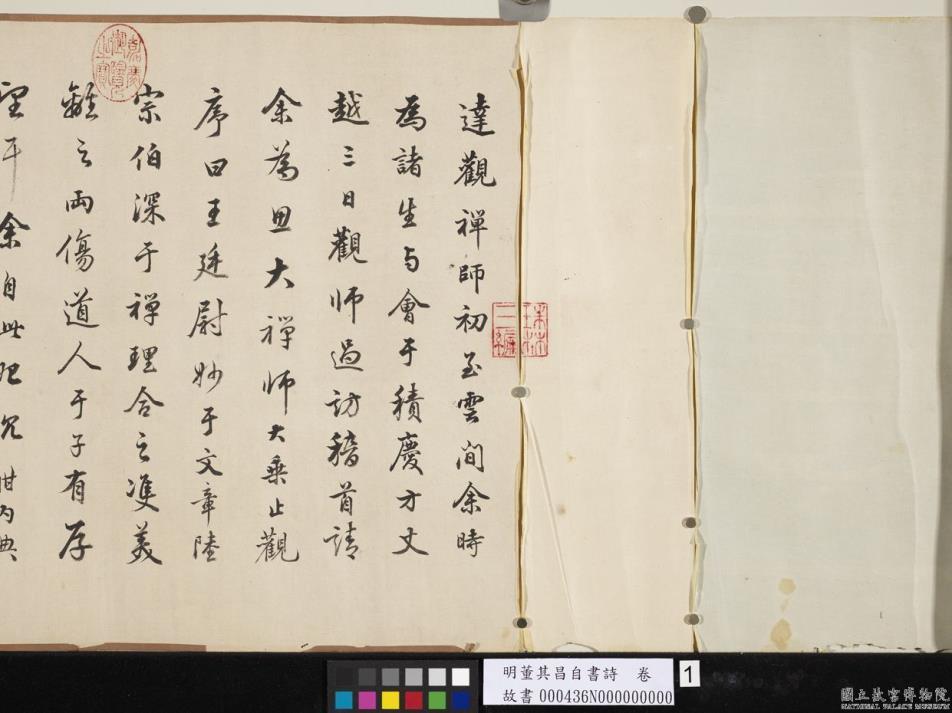 達觀禪師初至雲間余時
為諸生与會于積慶方丈
越三日觀师過訪稽首請
余為思大禪师大乘止觀
序曰王廷尉妙于文章陸
宗伯深于禪理合之雙美
離之兩傷道人于子有厚
望耳余自此沉酣內典
嘉慶御覽之寶
三編
明董其昌自書詩 卷
故書000436N000000000
1
國立故宮博物院
NATIONAL PALACE MUSEUM